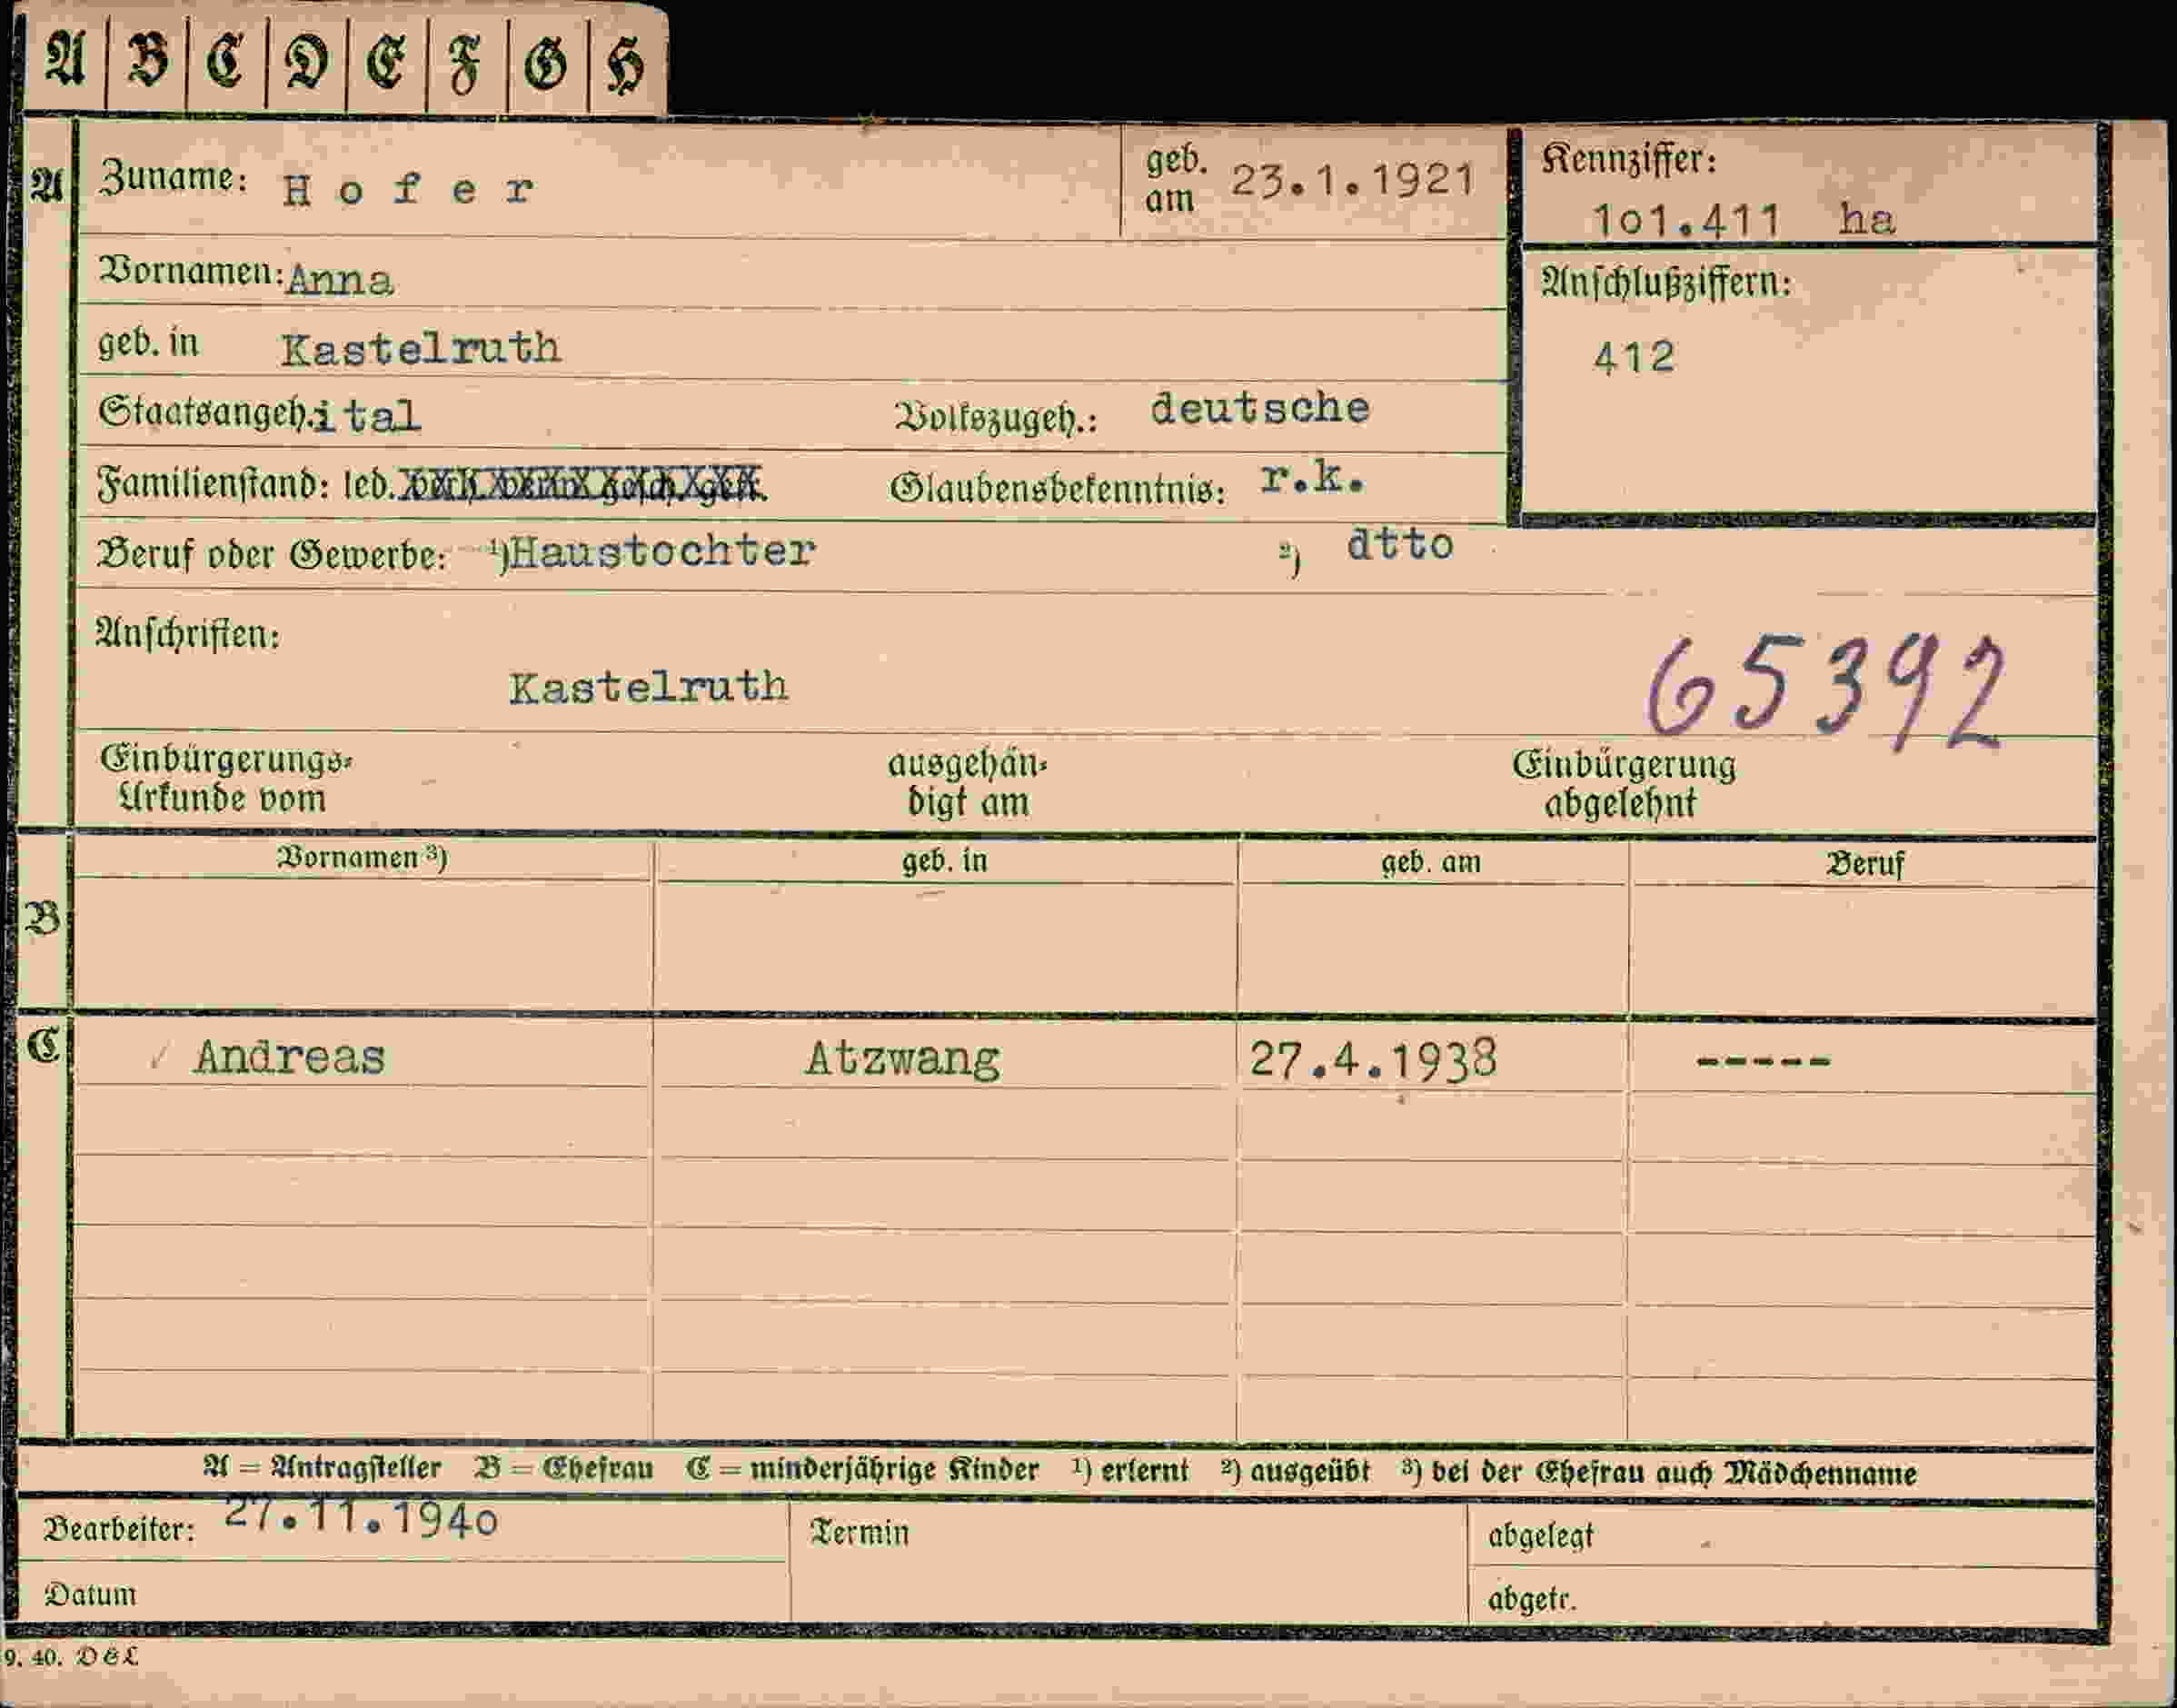 A B C D E F G H
A Zuname: Hofer geb. am 23.1.1921 Kennziffer:
101.411 ha
Vornamen: Anna Anschlußziffern:
geb. in Kastelruth 412
Staatsangeh. ital Volkszugeh.: deutsche
Familienstand: led. verh. verw. gesch. getr. Glaubensbekenntnis: r.k.
Beruf oder Gewerbe: ¹) Haustochter ²) dtto
Anschriften:
Kastelruth 65392
Einbürgerungs- ausgehän- Einbürgerung
Urkunde vom digt am abgelehnt
Vornamen ³) geb. in geb. am Beruf
B
C Andreas Atzwang 27.4.1938 -----
A = Antragsteller B = Ehefrau C = minderjährige Kinder ¹) erlernt ²) ausgeübt ³) bei der Ehefrau auch Mädchenname
Bearbeiter: 27.11.1940 Termin abgelegt
Datum abgetr.
9. 40. D&L